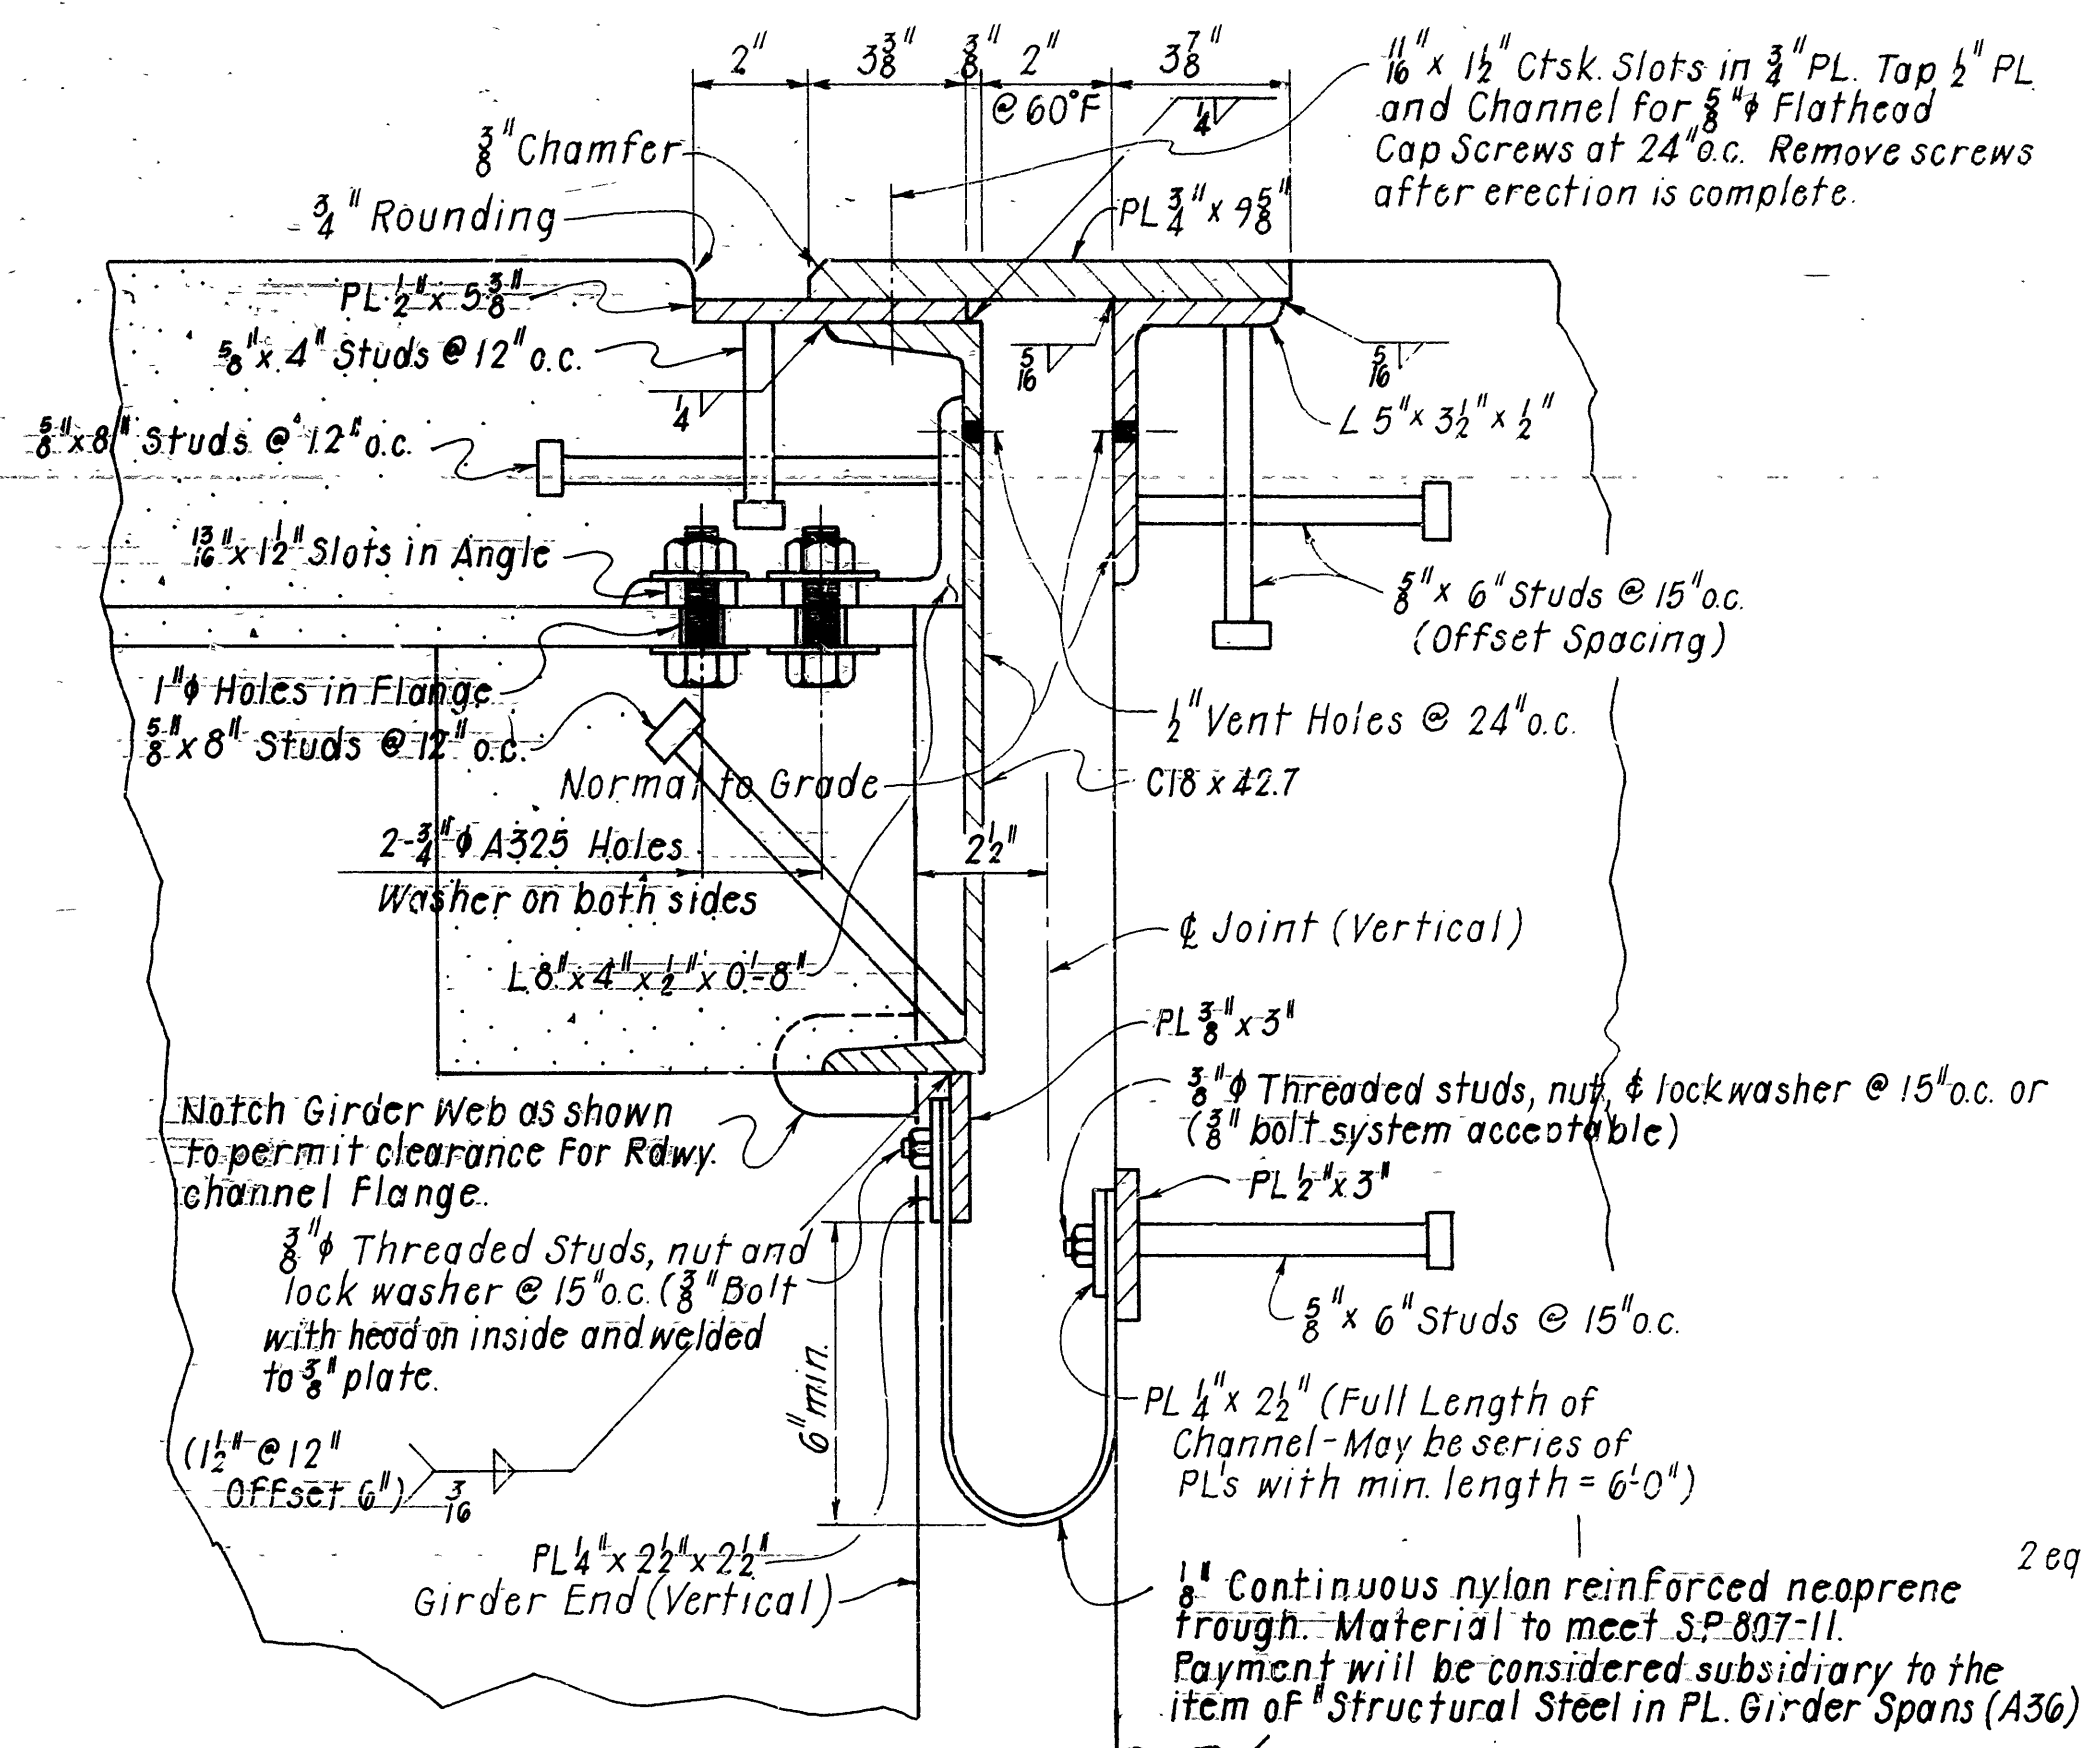 2" 3 3/8" 3/8" 2" 3 7/8"
@ 60°F
1/4
11/16" x 1 1/2" Ctsk. Slots in 3/4" PL. Tap 1/2" PL
and Channel for 5/8"ϕ Flathead
Cap Screws at 24" o.c. Remove screws
after erection is complete.
3/8" Chamfer
3/4" Rounding
PL 3/4" x 9 5/8"
PL 1/2" x 5 3/8"
5/8" x 4" Studs @ 12" o.c.
1/4
5/16
5/16
L 5" x 3 1/2" x 1/2"
5/8" x 8" Studs @ 12" o.c.
13/16" x 1 1/2" Slots in Angle
5/8" x 6" Studs @ 15" o.c.
(Offset Spacing)
1"ϕ Holes in Flange
5/8" x 8" Studs @ 12" o.c.
1/2" Vent Holes @ 24" o.c.
Normal to Grade
C18 x 42.7
2-3/4"ϕ A325 Holes
Washer on both sides
2 1/2"
℄ Joint (Vertical)
L 8" x 4" x 1/2" x 0'-8"
PL 3/8" x 3"
3/8"ϕ Threaded studs, nut, & lockwasher @ 15" o.c. or
(3/8" bolt system acceptable)
Notch Girder Web as shown
to permit clearance For Rdwy.
channel Flange.
PL 1/2" x 3"
3/8"ϕ Threaded Studs, nut and
lock washer @ 15" o.c. (3/8" Bolt
with head on inside and welded
to 3/8" plate.
5/8" x 6" Studs @ 15" o.c.
6" min.
PL 1/4" x 2 1/2" (Full Length of
Channel-May be series of
PL's with min. length = 6'-0")
(1 1/2" @ 12"
Offset 6")
3/16
PL 1/4" x 2 1/2" x 2 1/2"
Girder End (Vertical)
2 eq
1/8" Continuous nylon reinforced neoprene
trough. Material to meet S.P. 807-11.
Payment will be considered subsidiary to the
item of "Structural Steel in PL. Girder Spans (A36)